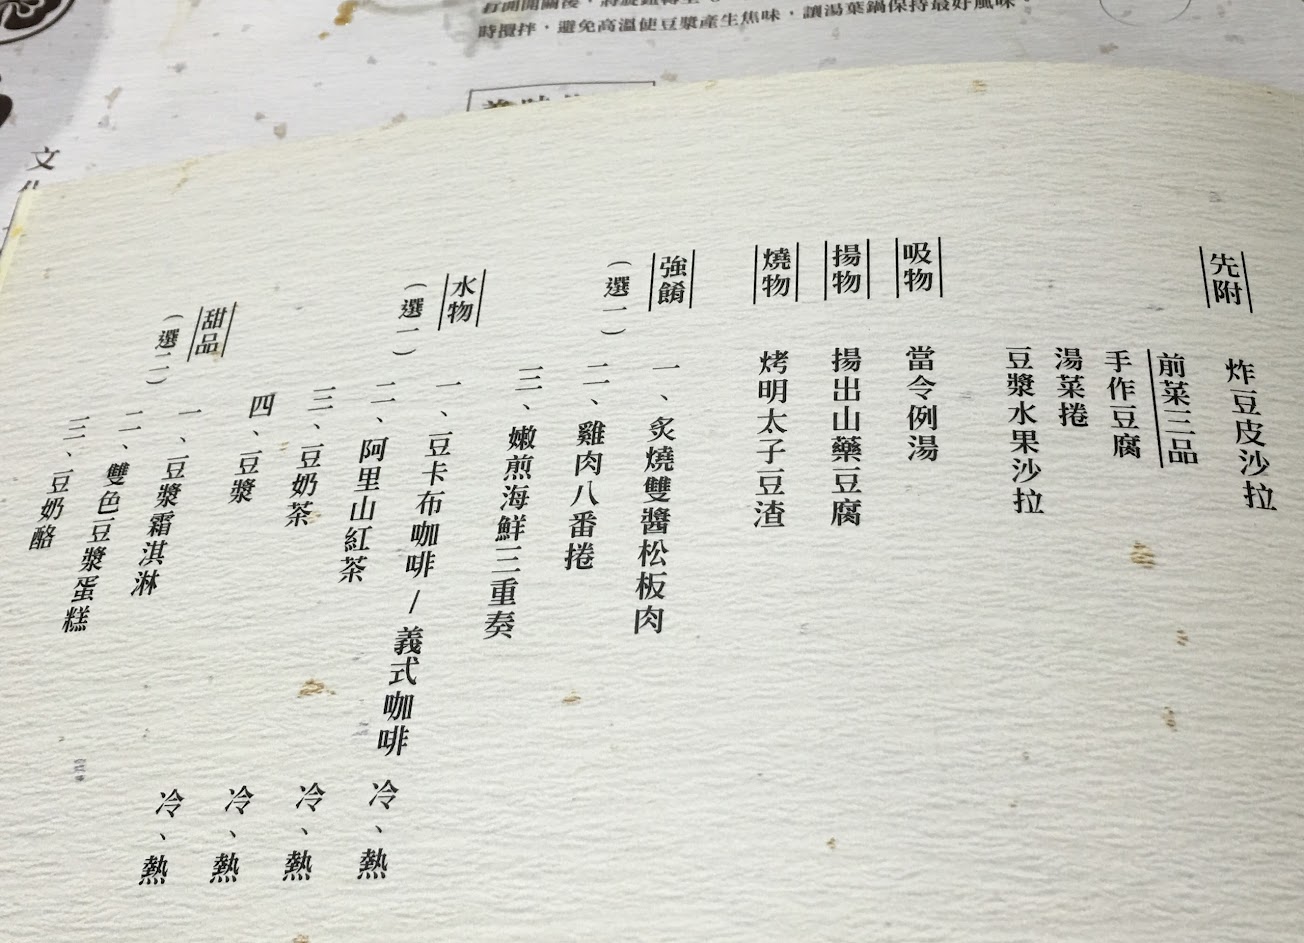 打開開關後，將旋鈕轉至
時攪拌，避免高溫使豆漿產生焦味，讓湯葉鍋保持最好風味。
文化
先附
炸豆皮沙拉
前菜三品
手作豆腐
湯菜捲
豆漿水果沙拉
吸物
當令例湯
揚物
揚出山藥豆腐
燒物
烤明太子豆渣
強餚
（選一）
一、炙燒雙醬松板肉
二、雞肉八番捲
三、嫩煎海鮮三重奏
水物
（選一）
一、豆卡布咖啡/義式咖啡 冷、熱
二、阿里山紅茶 冷、熱
三、豆奶茶 冷、熱
四、豆漿 冷、熱
甜品
（選二）
一、豆漿霜淇淋
二、雙色豆漿蛋糕
三、豆奶酪